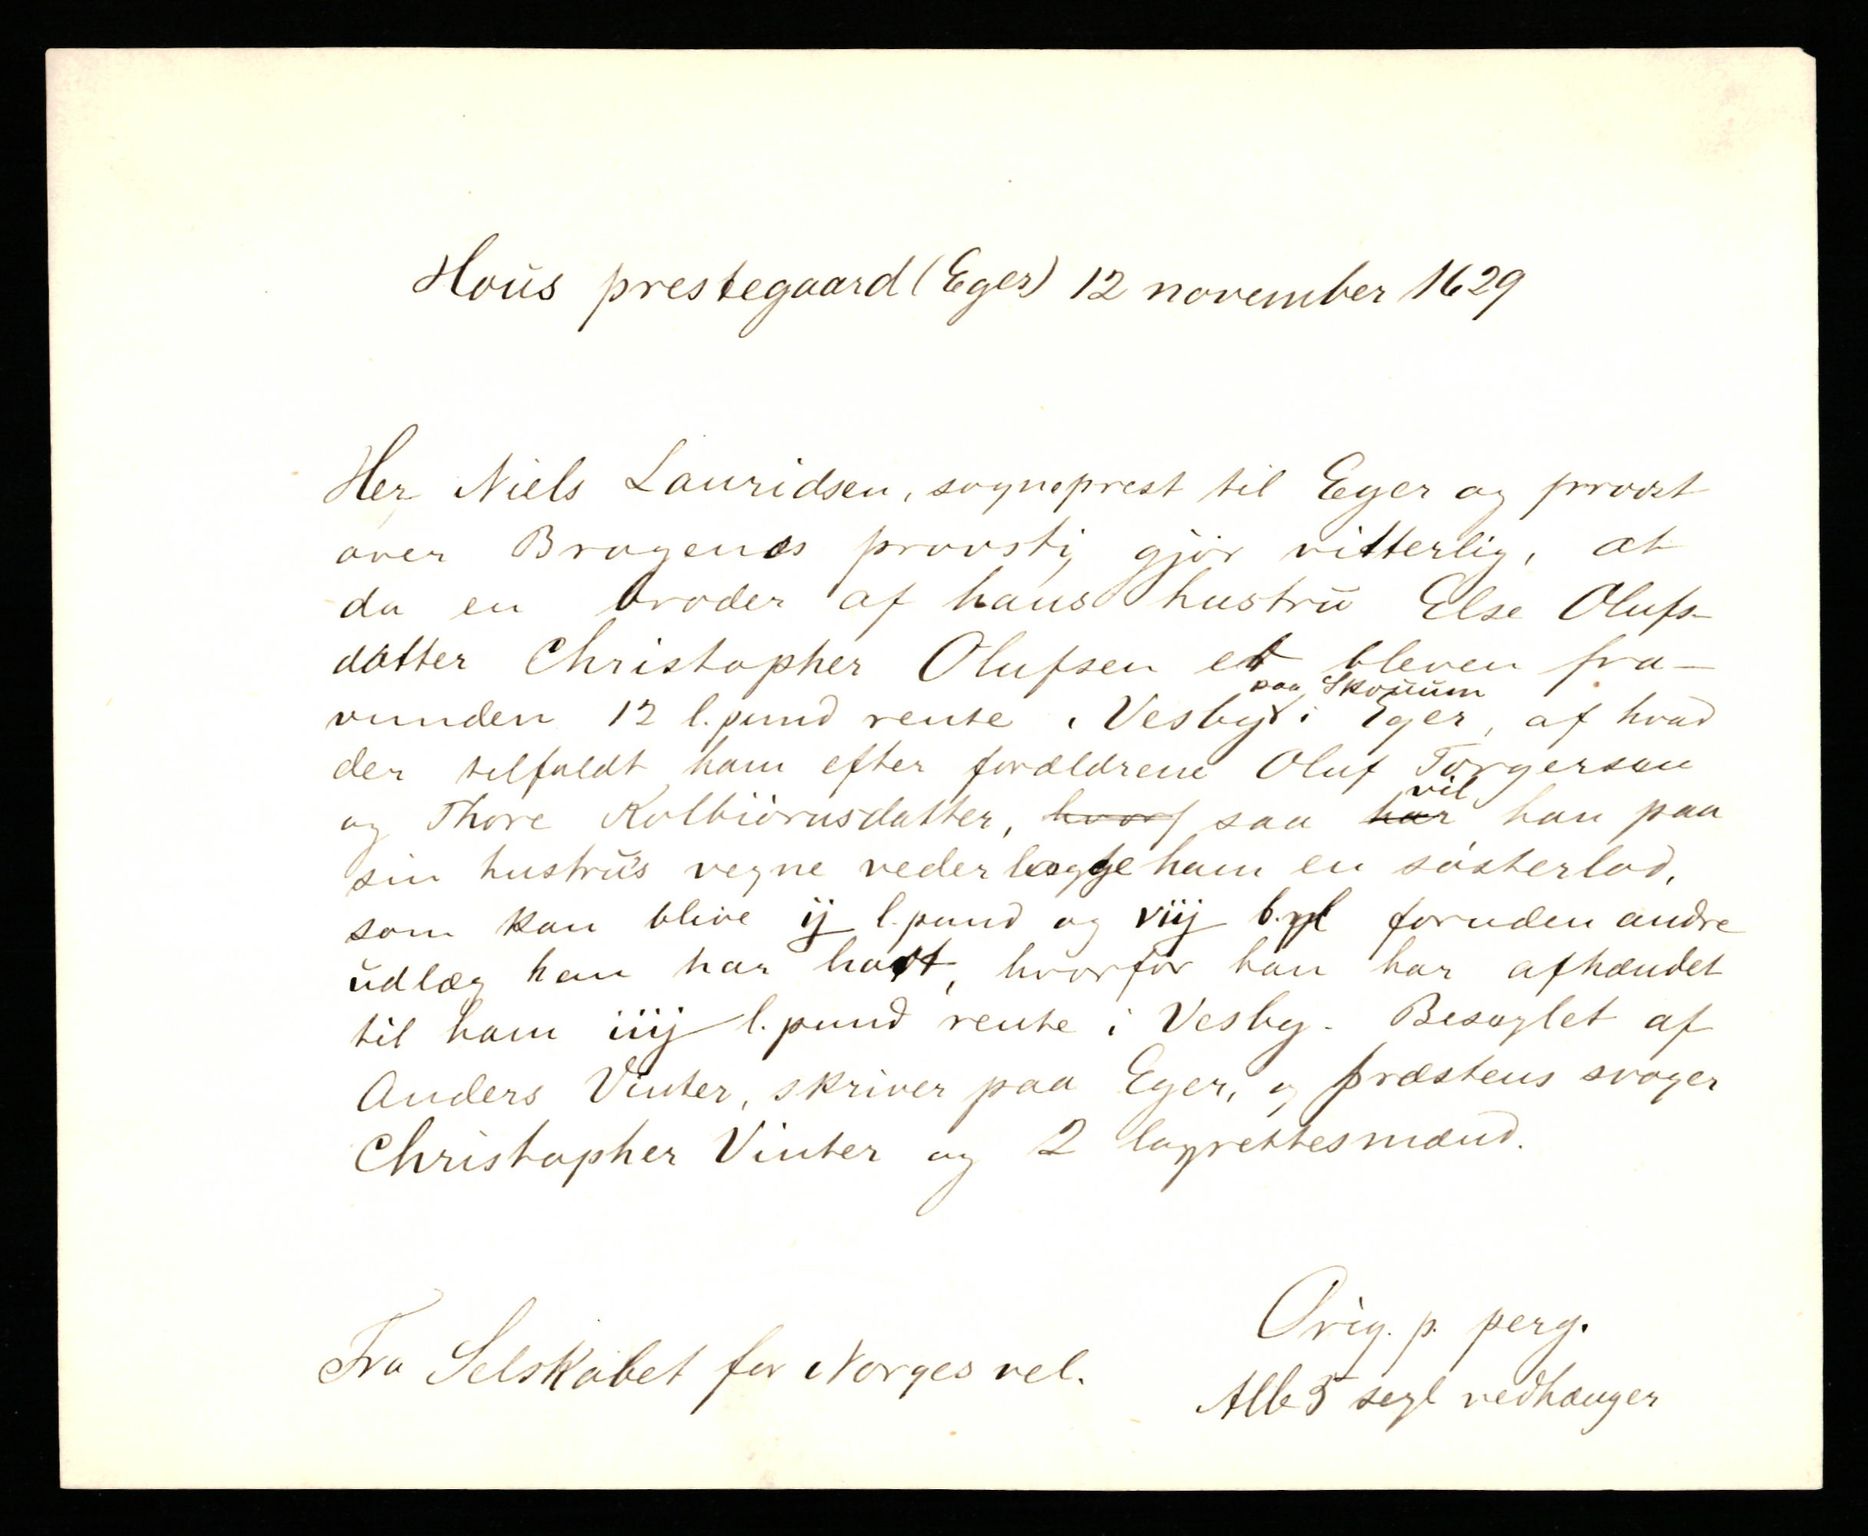 Hoŭs prestegaard (Eger) 12 november 1629
Her Niels Lauridsen, sogneprest til Eger og provst
over Bragenes provsti gjør vitterlig, at
da en broder af hans hustrŭ Else Olufs-
datter Christopher Olufsen er bleven fra-
paa Skoŭum
vunden 12 l.pund rente i Vesby i Eger, af hvad
der tilfaldt ham efter forældrene Oluf Torgersen
vil
og Thore Kolbiörnsdatter, hvorf saa har han paa
sin hustrŭs vegne vederlægge ham en søsterlod,
som kan blive ij l.pund og viij b.pd foruden andre
ŭdlæg han har havt, hvorfor han har afhændet
til ham iiij l.pund rente i Vesby. Beseglet af
Anders Vinter, skriver paa Eger, og præstens svoger
Christopher Vinter og 2 lagrettesmænd.
Orig. p. perg.
Fra Selskabet for Norges vel.
Alle 5 segl vedhænger